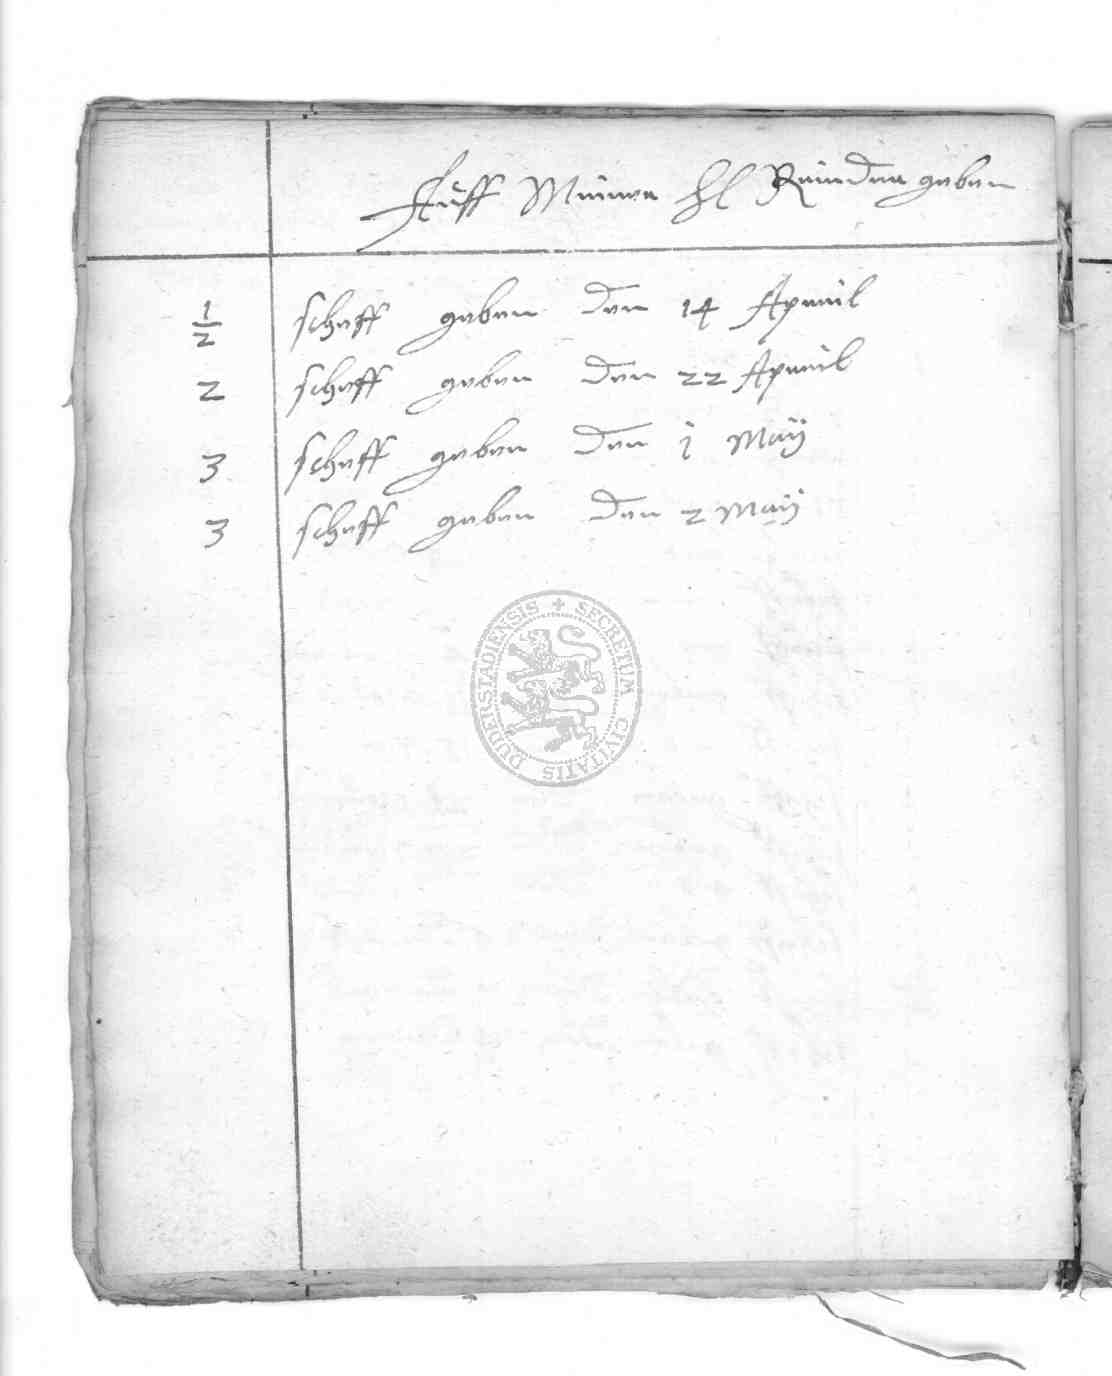 Auff Meiner hl Reinder geben
1/2 scheff geben den 14 Apreil
2 scheff geben den 22 Apreil
3 scheff geben den j Maÿ
3 scheff geben den 2 Maÿ
SECRETUM CIVITATIS DUDERSTADIENSIS